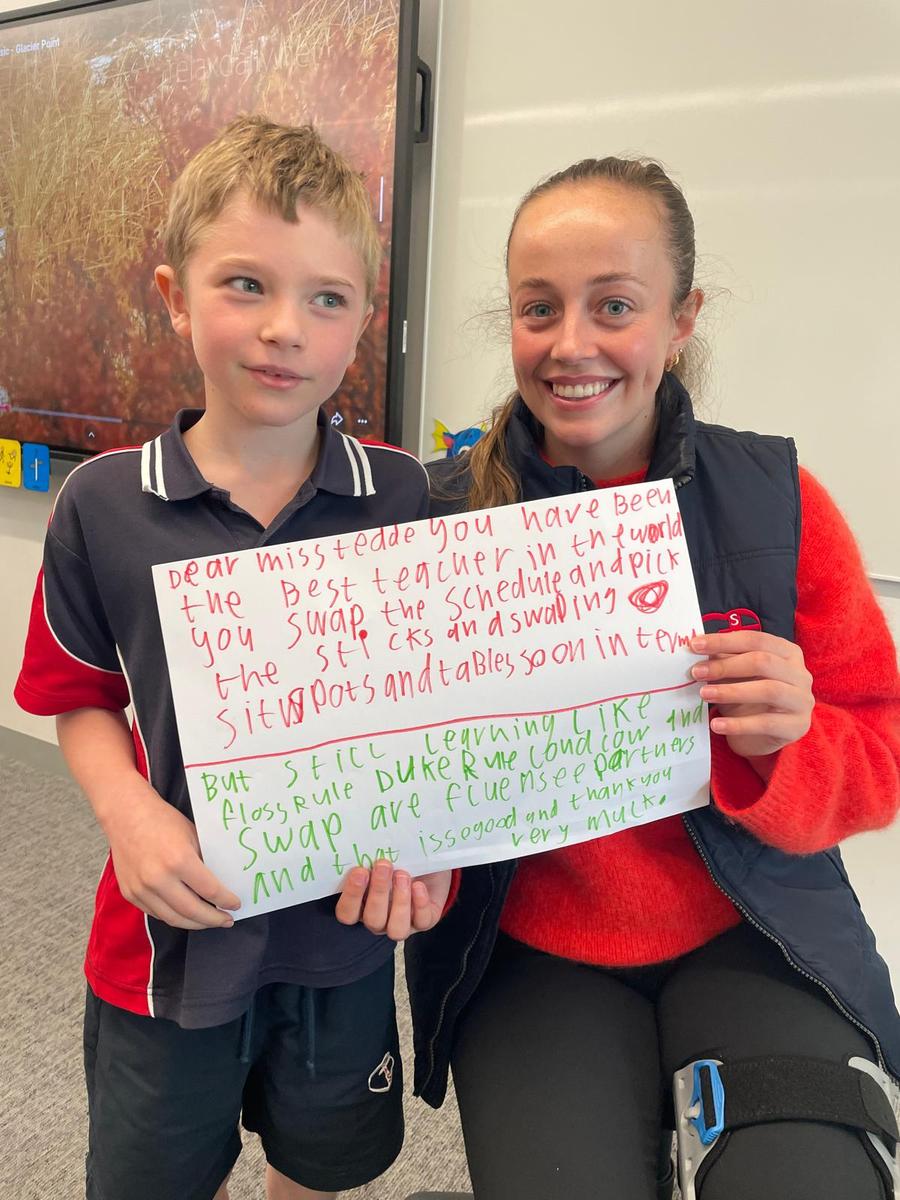 sic - Glacier Point
relaxdaily.net
Dear miss tedde you have Been
the Best teacher in the world
you swap the schedule and pick
the sticks and swaping
sit spots and tables so on in term
But still learning like
floss Rule Duke Rule loud low and
swap are fluensee partners
and that is segood and thankyou
very much.
S